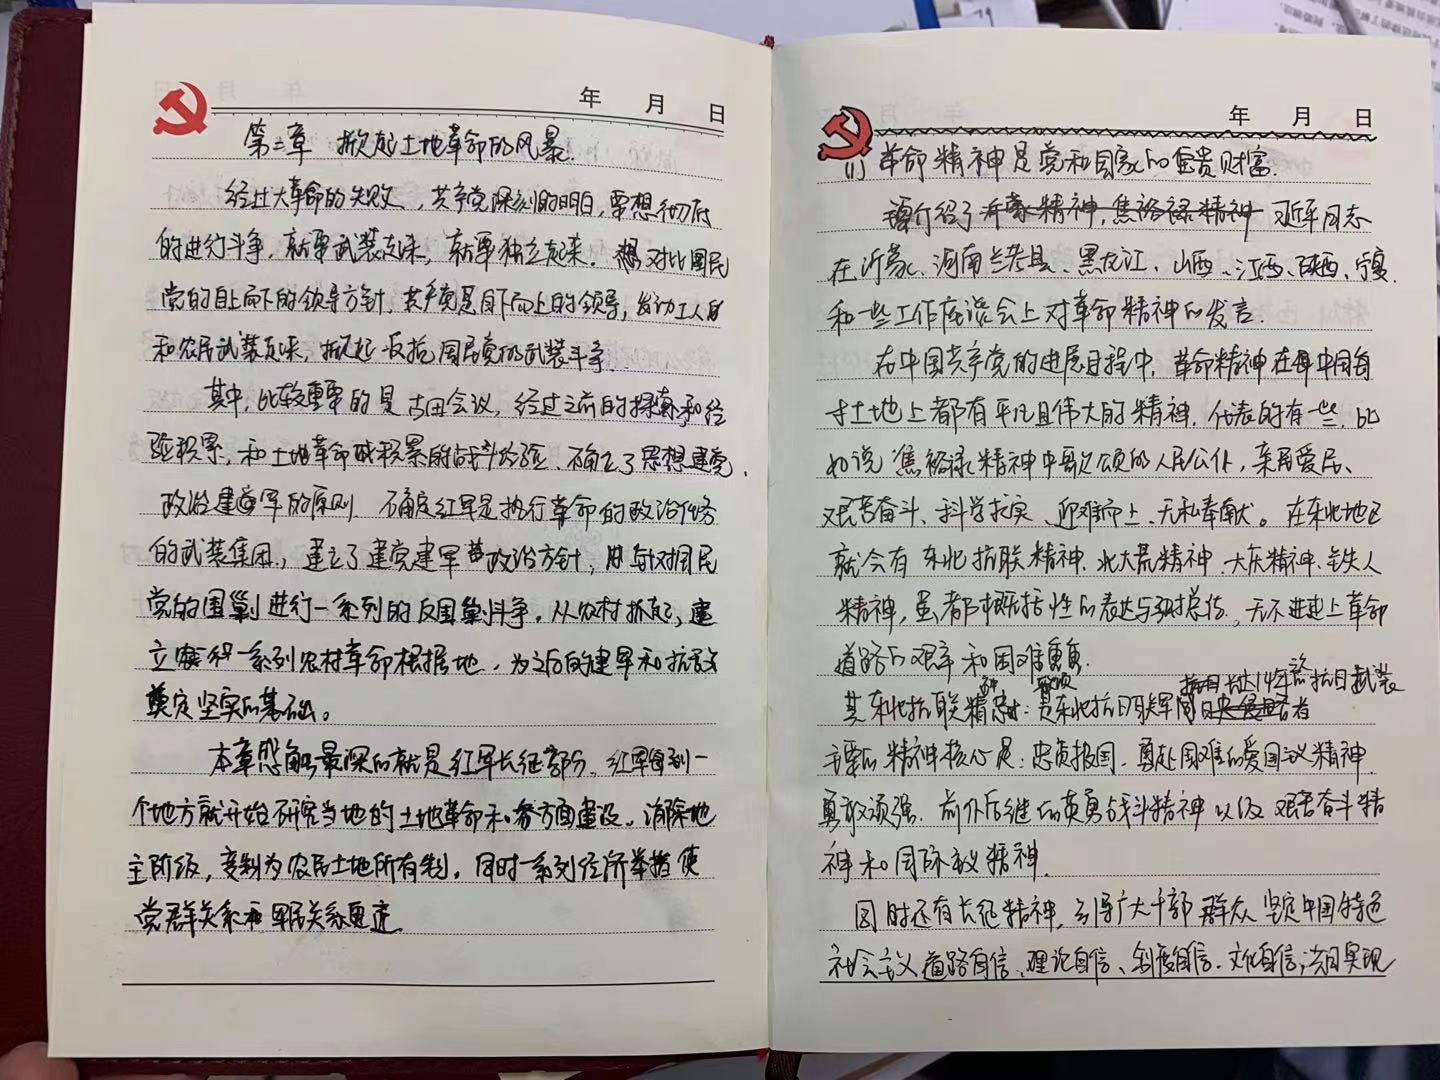 年 月 日
第三章 掀起土地革命的风暴.
经过大革命的失败、,共产党深刻的明白,要想彻底
的进行斗争,就要武装起来,就要独立起来。对比国民
党的自上而下的领导方针,共产党是自下而上的领导,发动工人
和农民武装起来,掀起反抗国民党的武装斗争.
其中,比较重要的是古田会议,经过之前的探索和经
验积累,和土地革命战积累的战斗经验、确立了思想建党、
政治建军的原则.确定红军是执行革命的政治任务
的武装集团,建立了建党建军政治方针,针对国民
党的围剿进行一系列的反围剿斗争,从农村抓起,建
立一系列农村革命根据地,为之后的建军和抗战
奠定坚实的基础。
本章感触最深的就是红军长征部分,红军每到一
个地方就开始研究当地的土地革命和各方面建设。消除地
主阶级,变制为农民土地所有制,同时一系列经济举措使
党群关系和军民关系更近.
年 月 日
(1)革命精神是党和国家的宝贵财富.
介绍了沂蒙精神,焦裕禄精神 习近平同志
在沂蒙、河南兰考县、黑龙江、山西、江西、陕西、宁夏、
和一些工作座谈会上对革命精神的发言.
在中国共产党的进展日程中,革命精神在中国每
寸土地上都有平凡且伟大的精神.代表的有一些,比
如说焦裕禄精神中歌颂的人民公仆,亲民爱民、
艰苦奋斗、科学求实、迎难而上、无私奉献。在东北地区
就会有东北抗联精神、北大荒精神、大庆精神、铁人
精神,虽都有概括性的表达与,无不进述上革命
道路的艰辛和困难重重.
长达14年的抗日武装
其东北抗联精神:东北抗日联军
主要的精神核心是:忠贞报国、勇赴国难的爱国主义精神.
勇敢顽强、前仆后继的英勇战斗精神以及艰苦奋斗精
神和国际主义精神.
同时还有长征精神,引导广大干部群众坚定中国特色
社会主义道路自信、理论自信、制度自信、文化自信,共同实现